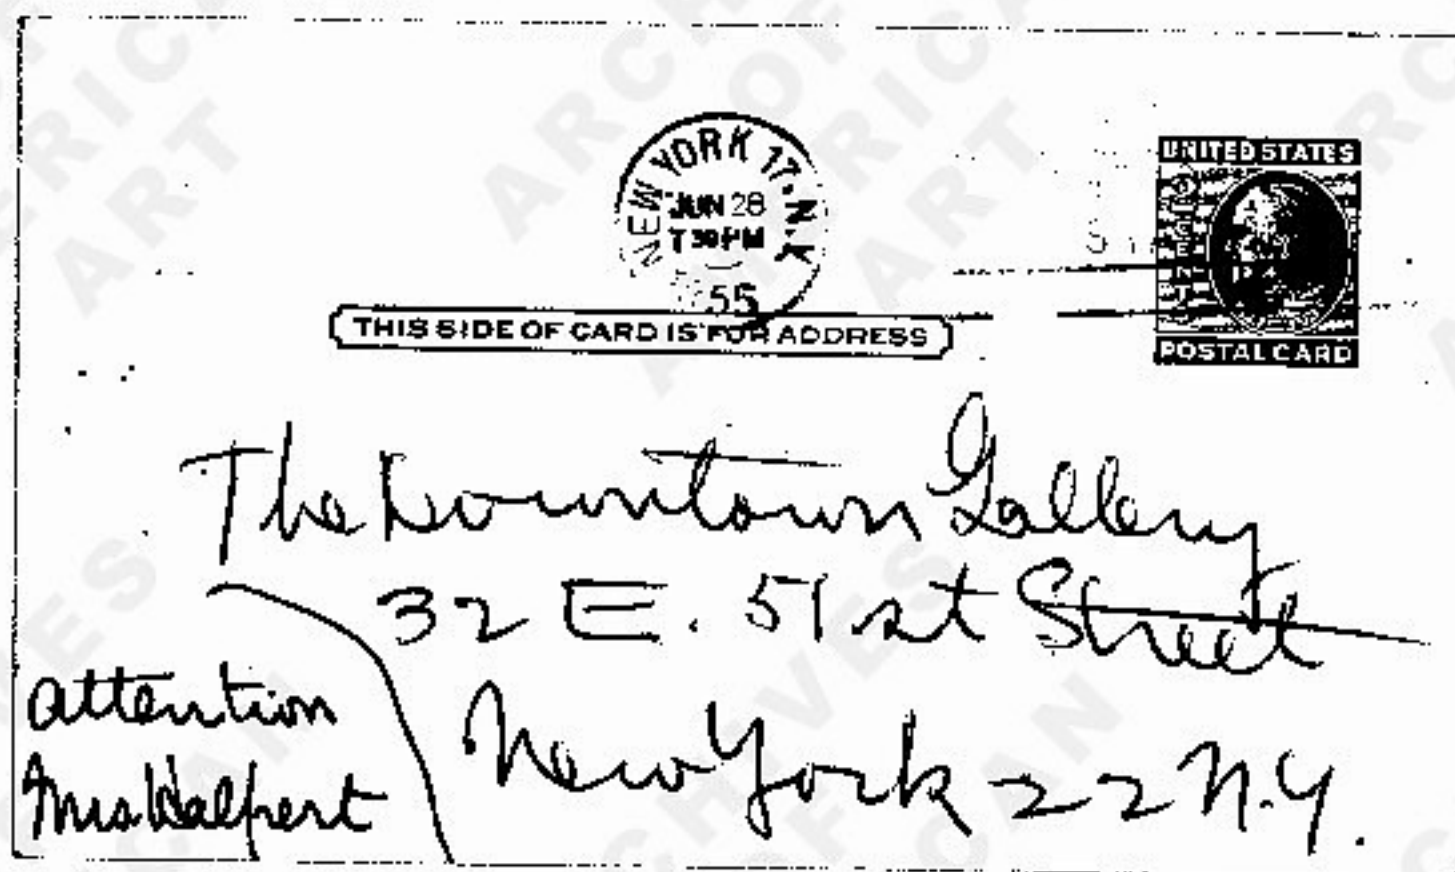 NEW YORK 17. N.Y.
JUN 28
7 30 PM
55
UNITED STATES
POSTAL CARD
THIS SIDE OF CARD IS FOR ADDRESS
The Downtown Gallery
32 E. 51st Street
New York 22 N.Y.
attention
Mrs Halpert
ARCHIVES
OF
AMERICAN
ART